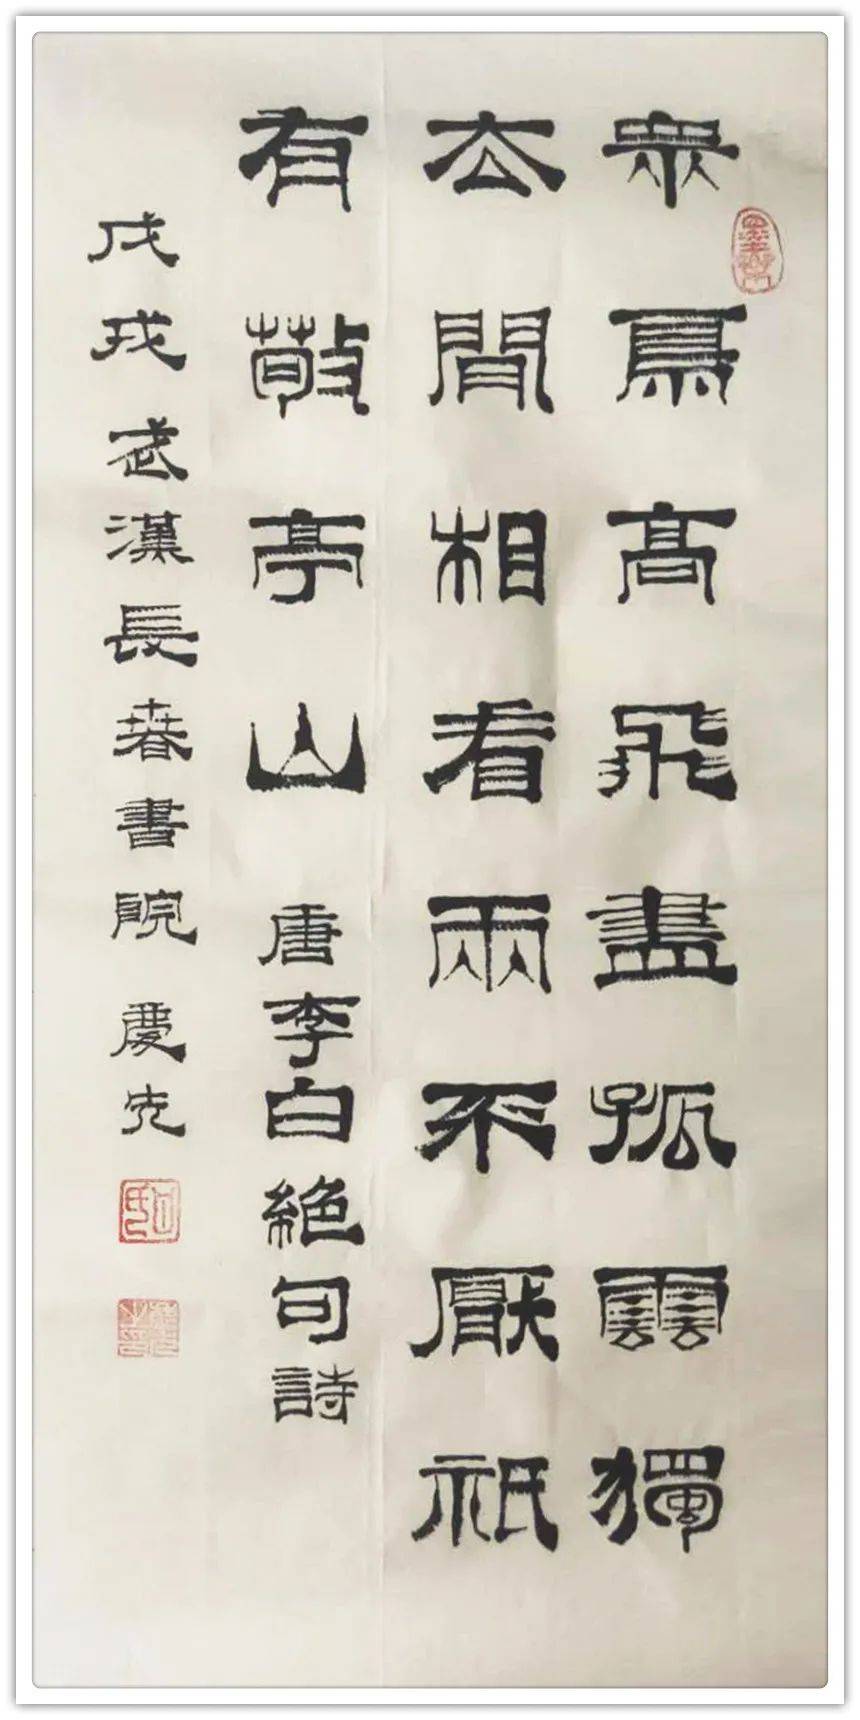 衆鳥高飛盡孤雲獨
去閒相看兩不厭祇
有敬亭山 唐李白絶句詩
戊戌武漢長春書院 慶先